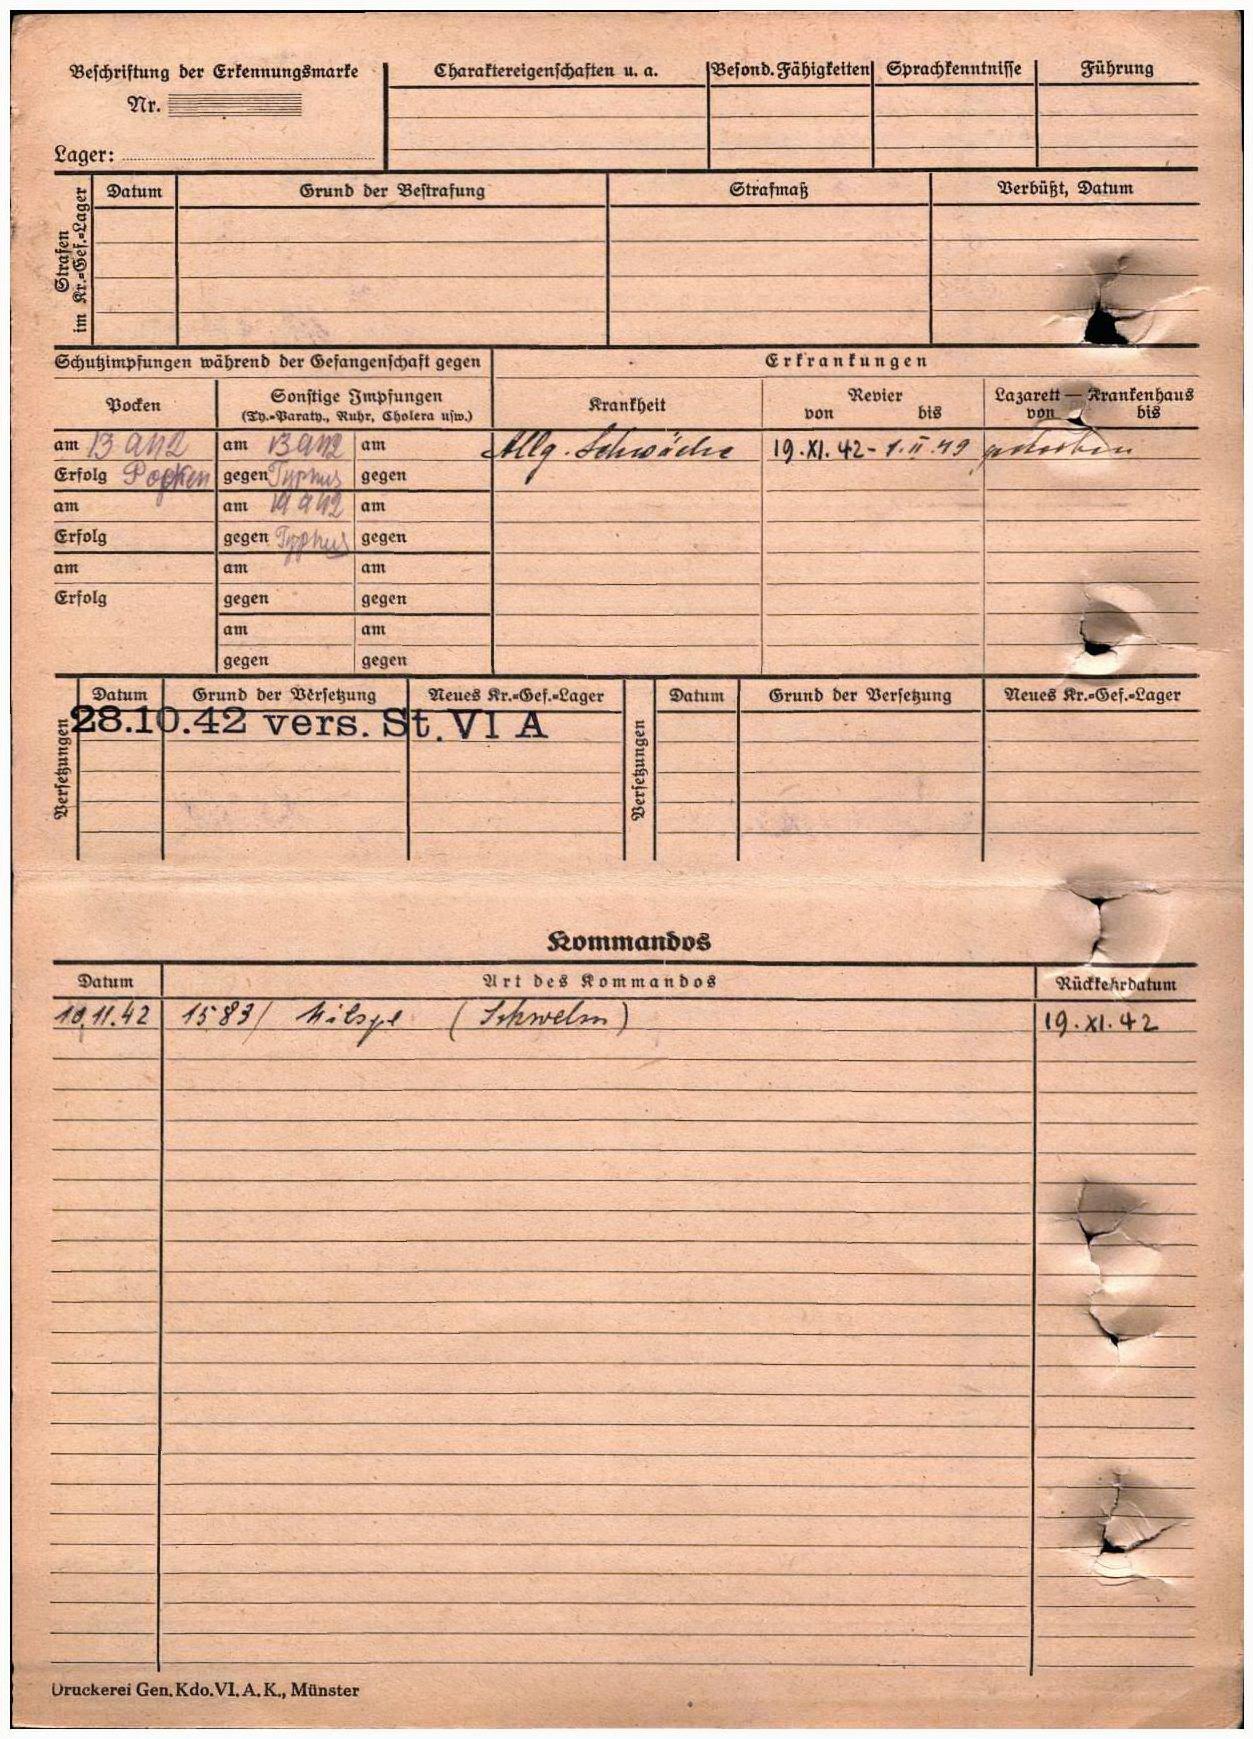 Beschriftung der Erkennungsmarke
Nr.
Lager:
Charaktereigenschaften u. a.
Besond. Fähigkeiten
Sprachkenntnisse
Führung
Strafen im Kr.=Gef.=Lager
Datum
Grund der Bestrafung
Strafmaß
Verbüßt, Datum
Schutzimpfungen während der Gefangenschaft gegen
Erkrankungen
Pocken
Sonstige Impfungen
(Ty.=Paraty., Ruhr, Cholera usw.)
Krankheit
Revier
von bis
Lazarett — Krankenhaus
von bis
am 13 9 42 am 13 9 42 am
Allg. Schwäche 19.XI.42 - 1.II.43 gestorben
Erfolg Pocken gegen Typhus gegen
am am 19 9 42 am
Erfolg gegen Typhus gegen
am am am
Erfolg gegen gegen
am am
gegen gegen
Versetzungen
Datum Grund der Versetzung Neues Kr.=Gef.=Lager
28.10.42 vers. St. VI A
Versetzungen
Datum Grund der Versetzung Neues Kr.=Gef.=Lager
Kommandos
Datum Art des Kommandos Rückkehrdatum
10.11.42 1583/ Milspe (Schwelm) 19.XI.42
Druckerei Gen. Kdo. VI. A. K., Münster